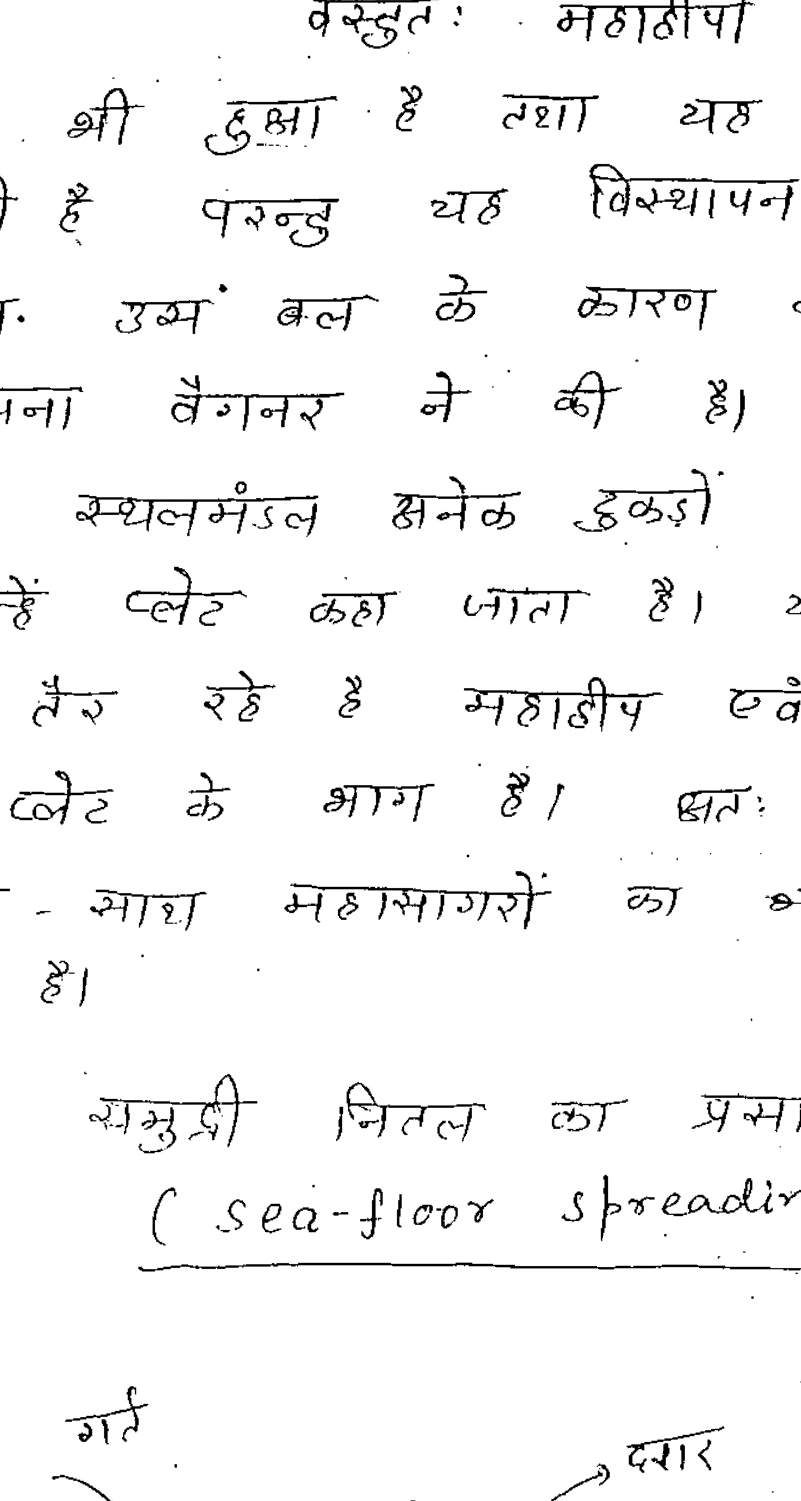 वस्तुत: महाद्वीपों
भी हुआ है तथा यह
है परन्तु यह विस्थापन
उस बल के कारण
वैगनर ने की है।
स्थलमंडल अनेक टुकड़ों
प्लेट कहा जाता है।
तैर रहे है महाद्वीप एवं
प्लेट के भाग है। अत:
- साथ महासागरों का
है।
समुद्री नितल का प्रसा
( sea-floor spreadin
गर्त
दरार